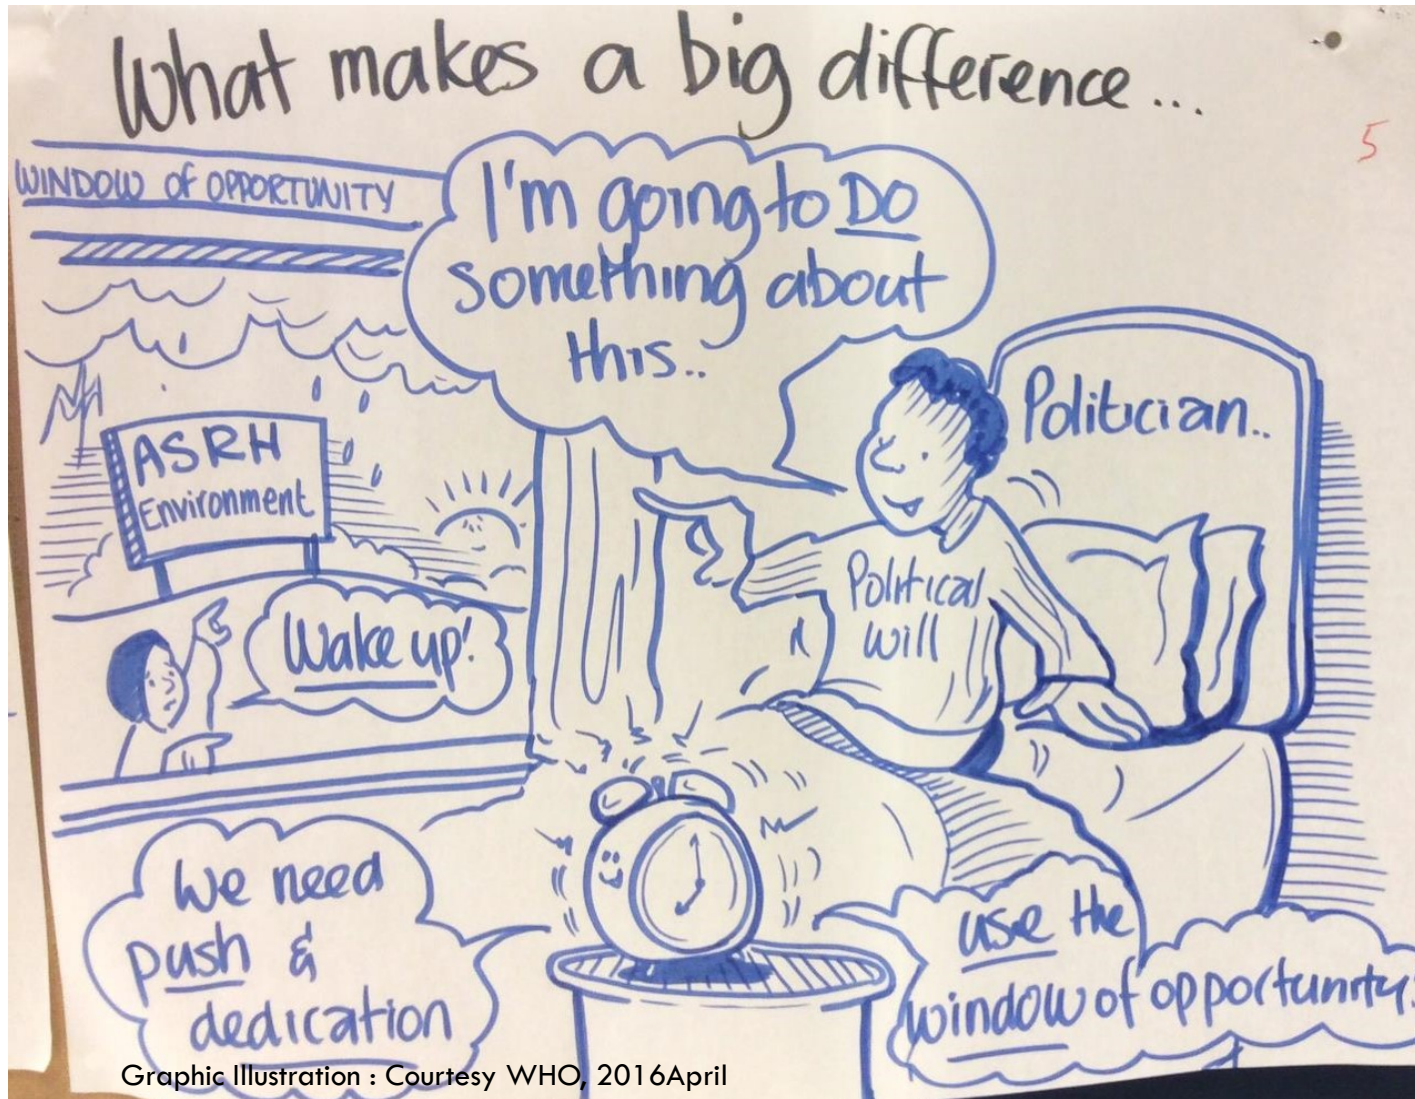 What makes a big difference...
5
WINDOW of OPPORTUNITY
I'm going to DO
something about
this..
Politician..
ASRH
Environment
Political
Will
Wake up!
We need
push &
dedication
use the
window of opportunity!
Graphic Illustration : Courtesy WHO, 2016April